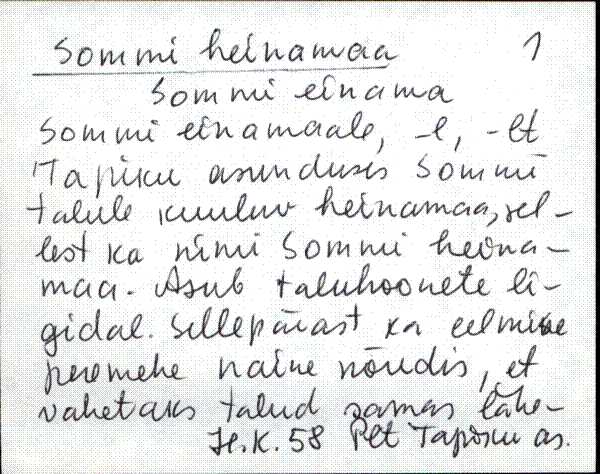 Sommi heinamaa 1
Sommi einama
Sommi einamaale, -l, -lt
Tapiku asunduses Sommi
talule kuuluv heinamaa, sel-
lest ka nimi Sommi heina-
maa. Asub taluhoonete li-
gidal. Sellepärast ka eelmise
peremehe naine nõudis, et
vahetaks talud samas lähe-
H.K. 58 Plt Tapiku as.